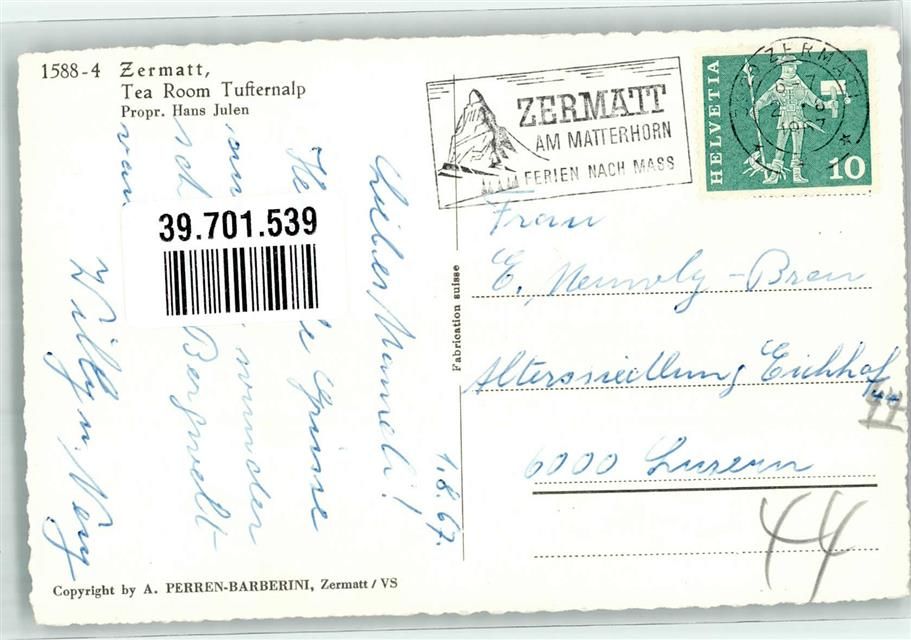 1588-4 Zermatt,
Tea Room Tufternalp
Propr. Hans Julen
ZERMATT
AM MATTERHORN
FERIEN NACH MASS
ZERMATT
1967
HELVETIA
10
39.701.539
1.8.67.
Grüsse
wunder
Bergwelt
Willy u. Vony
Fabrication suisse
Frau
E.
Alterssiedlung Eichhof
44
6000 Luzern
44
Copyright by A. PERREN-BARBERINI, Zermatt / VS